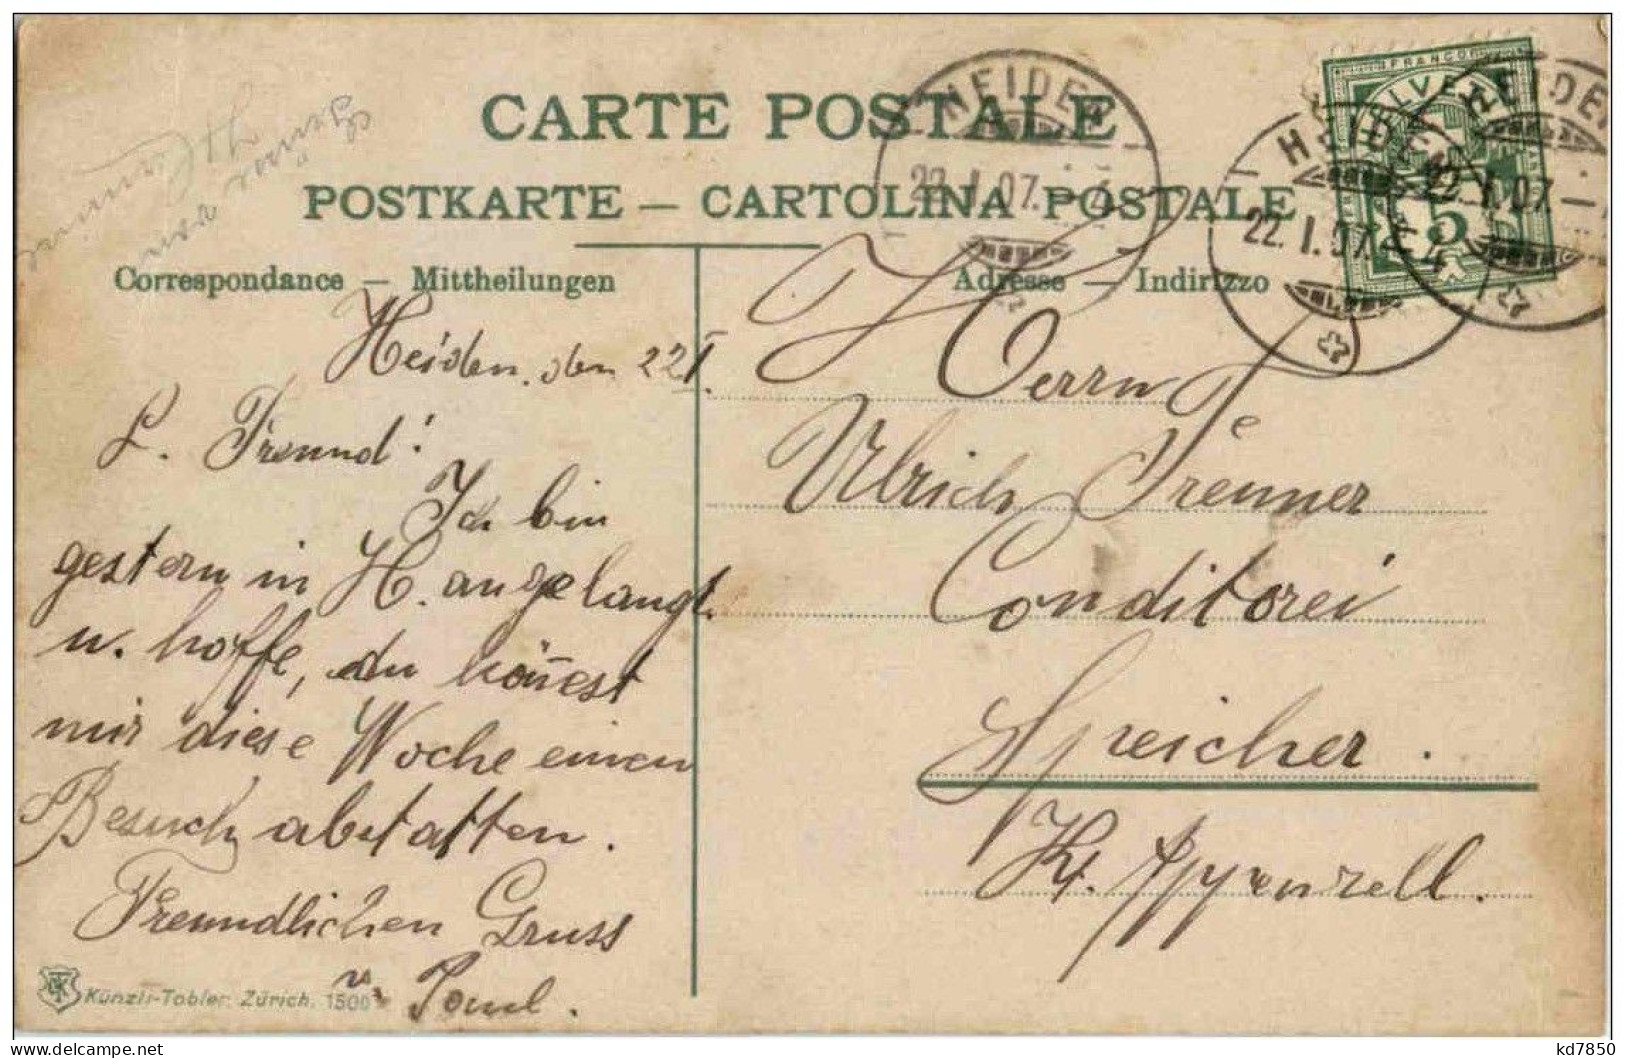 CARTE POSTALE
POSTKARTE — CARTOLINA POSTALE
Correspondance — Mittheilungen
Adresse — Indirizzo
HEIDEN
22.I.07.–4
HEIDEN
22.I.07.–4
HEIDEN
22.I.07.
FRANCO
HELVETIA
5
Heiden, den 22 I.
L. Freund!
Ich bin
gestern in H. angelangt
u. hoffe, du kön̄est
mir diese Woche einen
Besuch abstatten.
Freundlichen Gruss
v. Paul.
Herrn
Ulrich
Conditorei
Speicher.
Kt. Appenzell.
Künzli-Tobler, Zürich. 1500
www.delcampe.net
kd7850